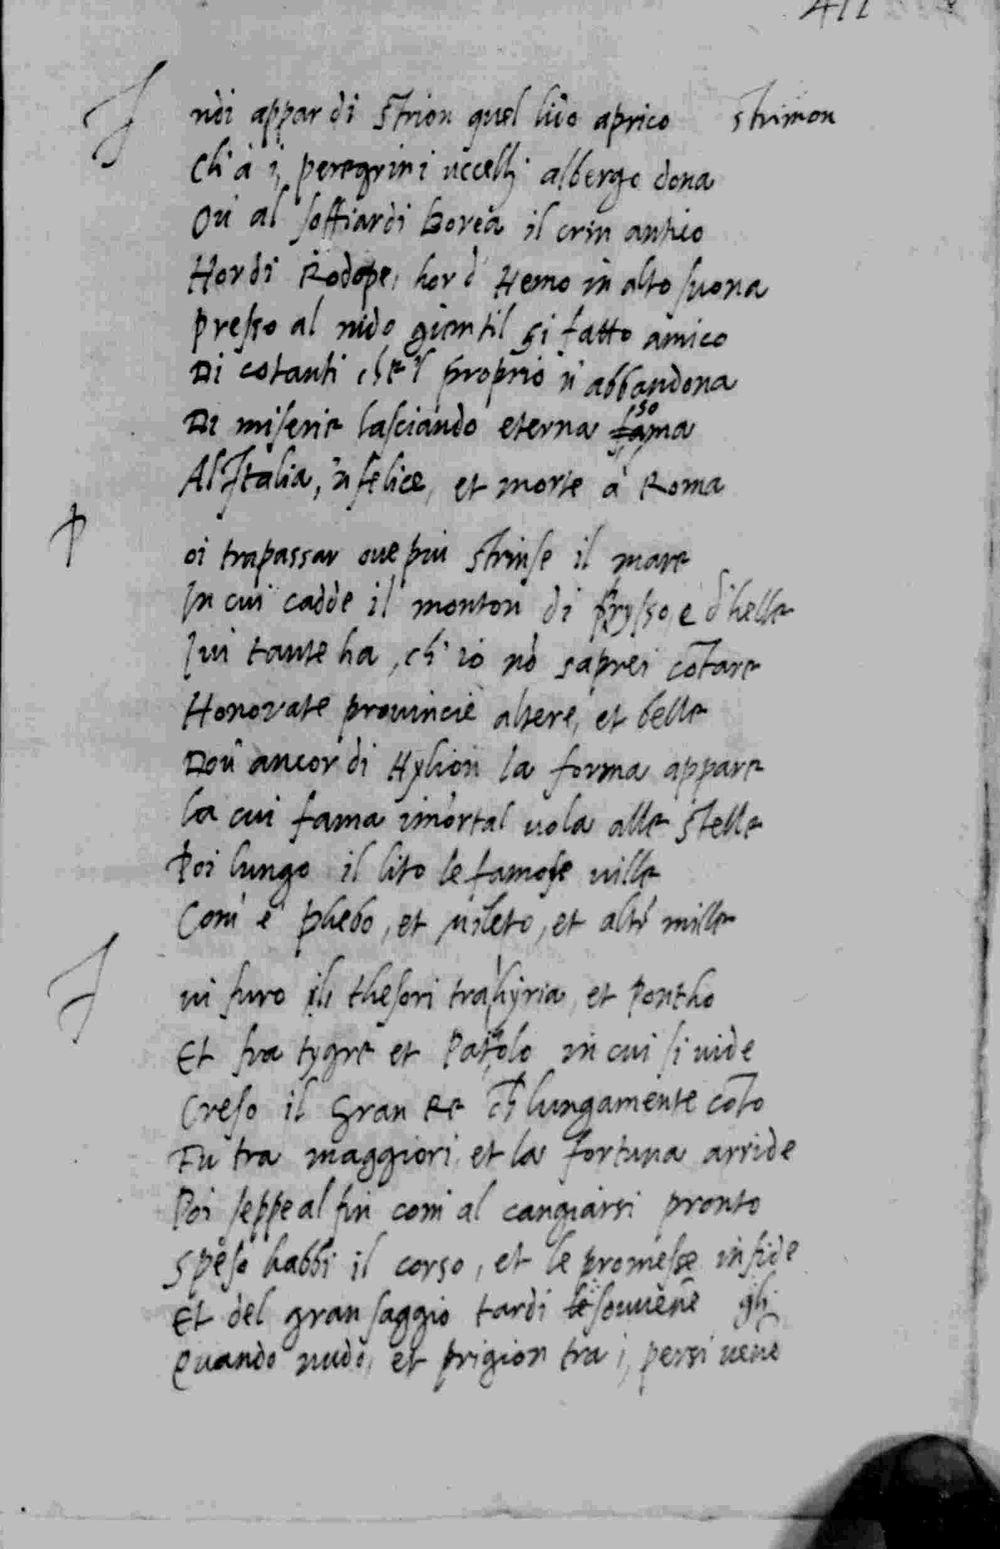 411
Indi appar di Strion quel lito aprico strimon
Ch'à i peregrini uccelli albergo dona
Ou' al soffiar di Borea il crin antico
Hor di Rodope, hor d'Hemo in alto suona
Presso al nido gientil gi fatto amico
Di cotanti che'l proprio n'abbandona
Di miserie lasciando eterna fama so
Al'Italia, infelice, et morte à Roma
Poi trapassar oue piu strinse il mare
In cui cadde il monton di frysso, e d'helle
Iui tante ha, ch'io nō saprei cōtare
Honorate prouincie altere, et belle
Dou' ancor di Hylion la forma appare
La cui fama imortal uola alle stelle
Poi lungo il lito le famose ville
Com' e phebo, et mileto, et altr' mille
Iui furo ili thesori tra hyria, et Pontho
Et fra tygre et Patolo in cui si uide
Creso il Gran Re ch lungamente cōto
Fu tra maggiori, et la fortuna arride
Poi seppe al fin com' al cangiarsi pronto
Speso habbi il corso, et le promesse infide
Et del gran saggio tardi le souuēne gli
Quando nudo, et prigion tra i persi uēne